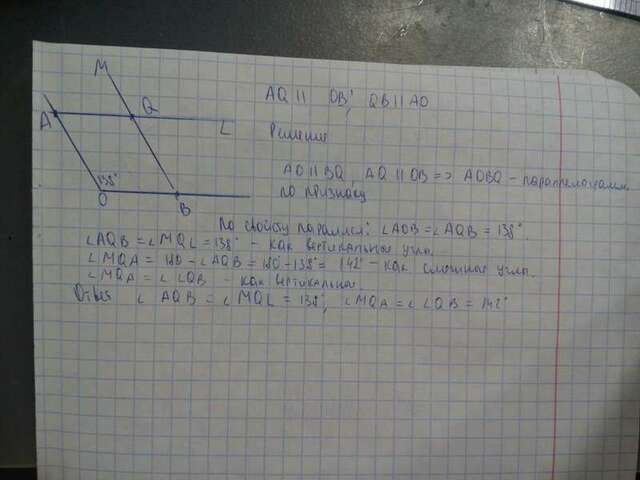 M
Q
A
L
138°
O
B
AQ || OB; QB || AO
Решение
AO || BQ, AQ || OB => AOBQ - параллелограмм
по признаку
По свойству паралл.: ∠AOB = ∠AQB = 138°.
∠AQB = ∠MQL = 138° - как вертикальные углы.
∠MQA = 180 - ∠AQB = 180 - 138° = 142° - как смежные углы.
∠MQA = ∠LQB - как вертикальные.
Ответ ∠AQB = ∠MQL = 138°, ∠MQA = ∠LQB = 142°